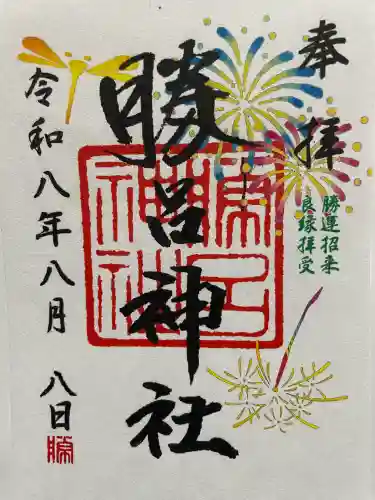 奉拝
勝運招来
良縁拝受
勝呂神社
令和八年八月八日
勝呂神社
勝